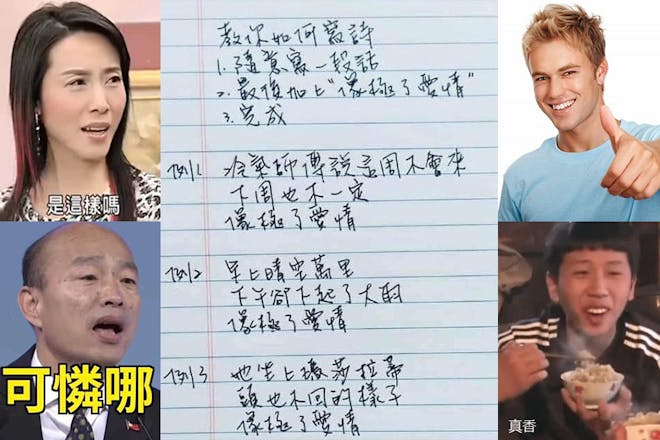 是這樣嗎
可憐哪
教你如何寫詩
1. 隨意寫一段話
2. 最後加上"像極了愛情"
3. 完成
例1 師傅說這周不會來
下周也不一定
像極了愛情
例2 早上晴空萬里
下午卻下起了大雨
像極了愛情
例3 她坐上瑪莎拉蒂
頭也不回的樣子
像極了愛情
真香